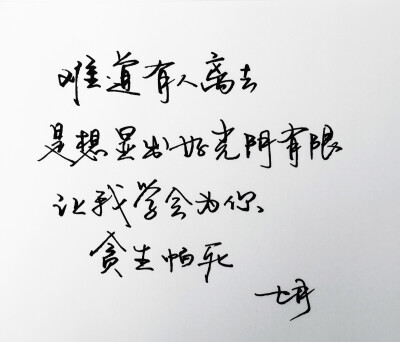 难道有人离去
是想显出好光阴有限
让我学会为你
贪生怕死